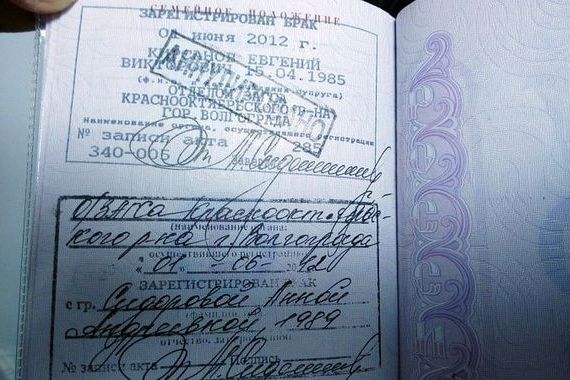 СЕМЕЙНОЕ ПОЛОЖЕНИЕ
ЗАРЕГИСТРИРОВАН БРАК
01 июня 2012 г.
ЕВГЕНИЙ
15.04.1985
супруга)
ОТДЕЛОМ
КРАСНООКТЯБРЬСКОГО Р-НА
ГОР. ВОЛГОГРАДА
Наименование органа, осуществившего регистрацию
№ записи акта 285
340-006
О/ЗАГСа Краснооктябрьс-
кого р-на г. Волгограда
(наименование органа,
осуществившего регистрацию)
"01" 06
ЗАРЕГИСТРИРОВАН БРАК
с гр. Сидоровой Анной
Андреевной, 1989
отчество,
№ записи акта Подпись